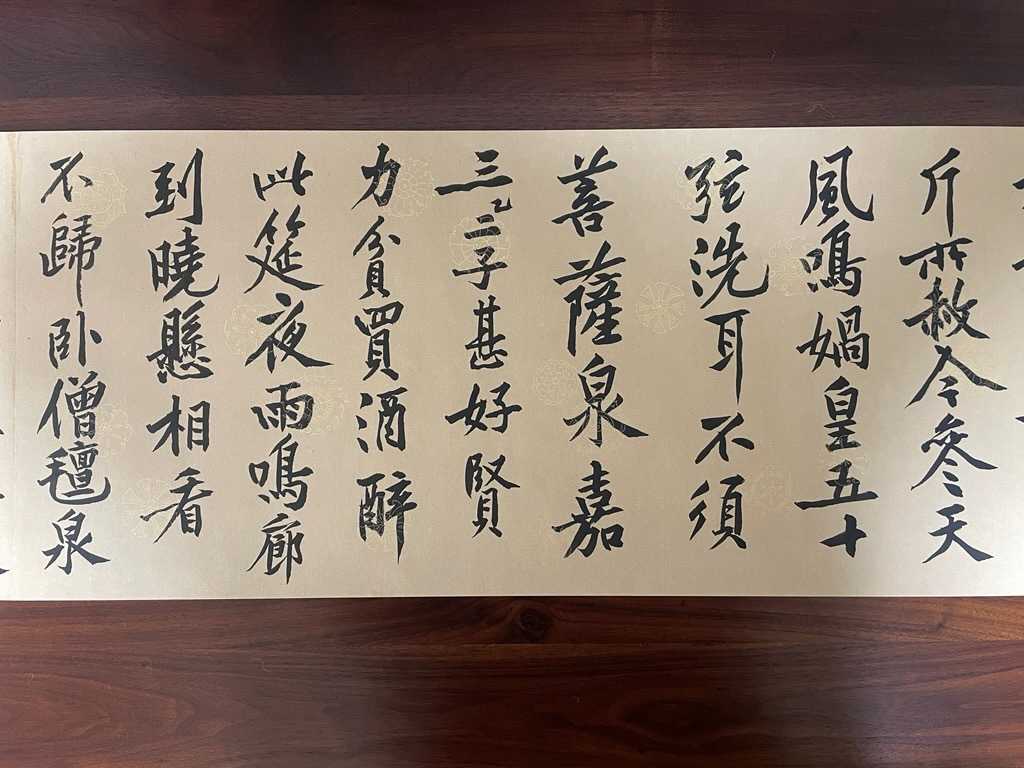 斤所赦今參天
風鳴媧皇五十
弦洗耳不須
菩薩泉嘉
三二二子甚好賢
力貧買酒醉
此筵夜雨鳴廊
到曉懸相看
不歸臥僧氈泉